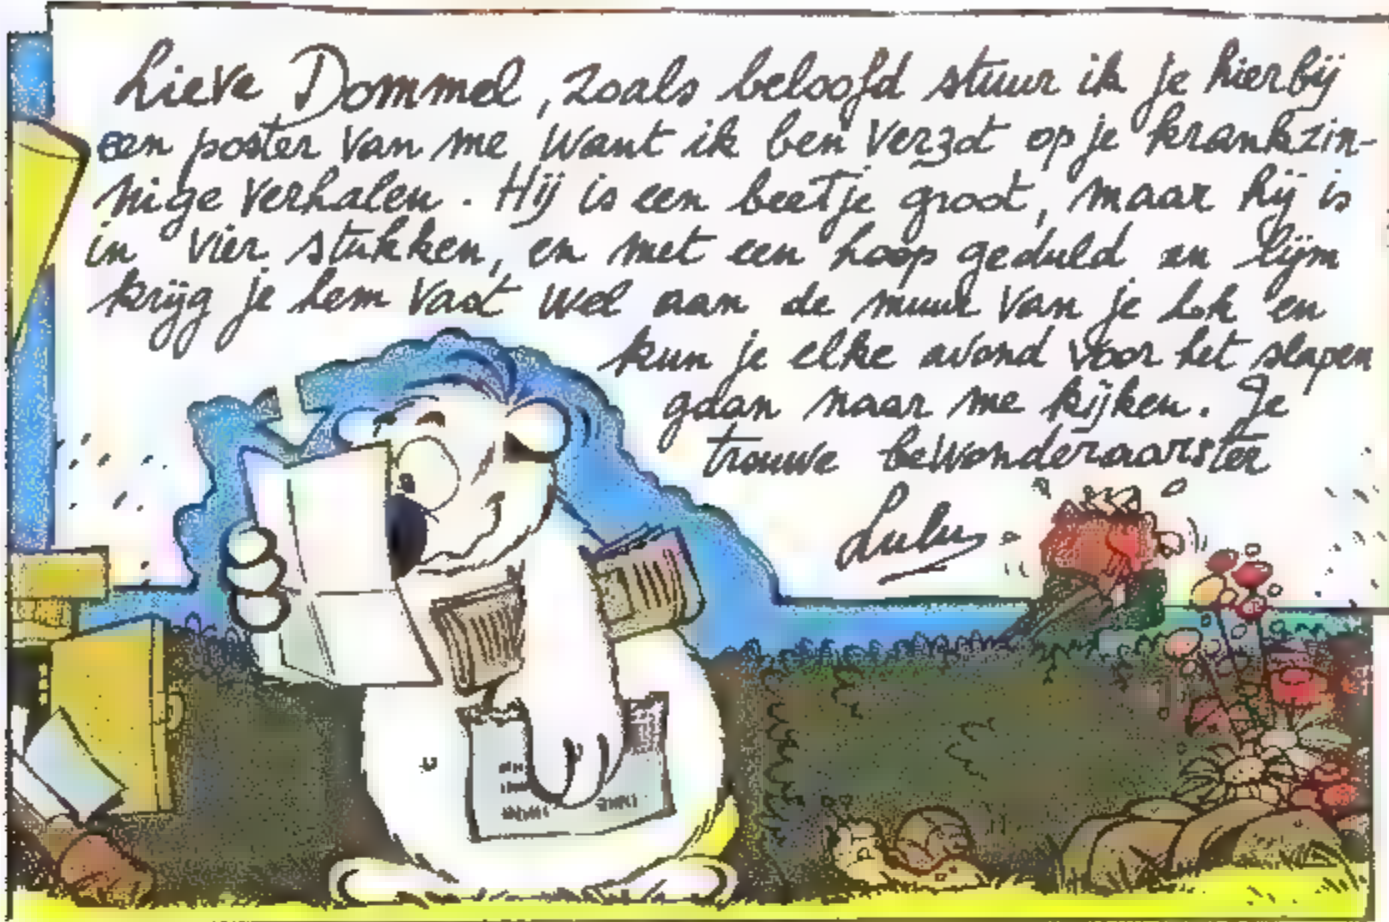 Lieve Dommel, zoals beloofd stuur ik je hierbij
een poster van me, want ik ben verzot op je krankzin-
nige verhalen. Hij is een beetje groot, maar hij is
in vier stukken, en met een hoop geduld en lijm
krijg je hem vast wel aan de muur van je hok en
kun je elke avond voor het slapen
gaan naar me kijken. Je
trouwe bewonderaarster
Lulu